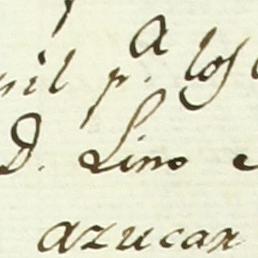 a
il p.ª los
D. Lino
azucar